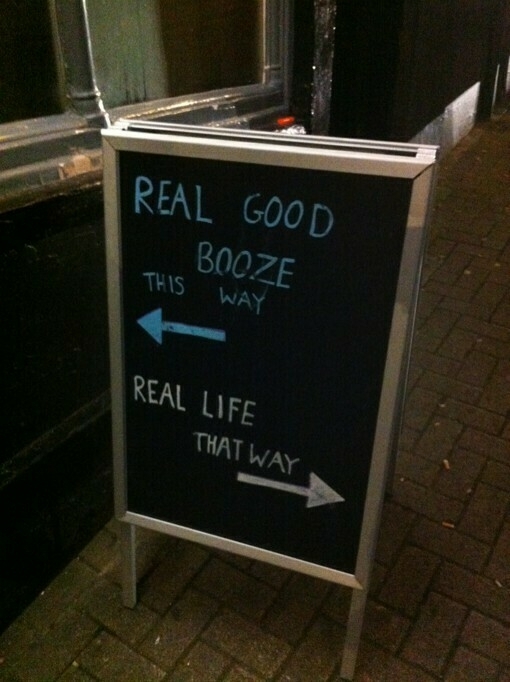 REAL GOOD
BOOZE
THIS WAY
REAL LIFE
THAT WAY